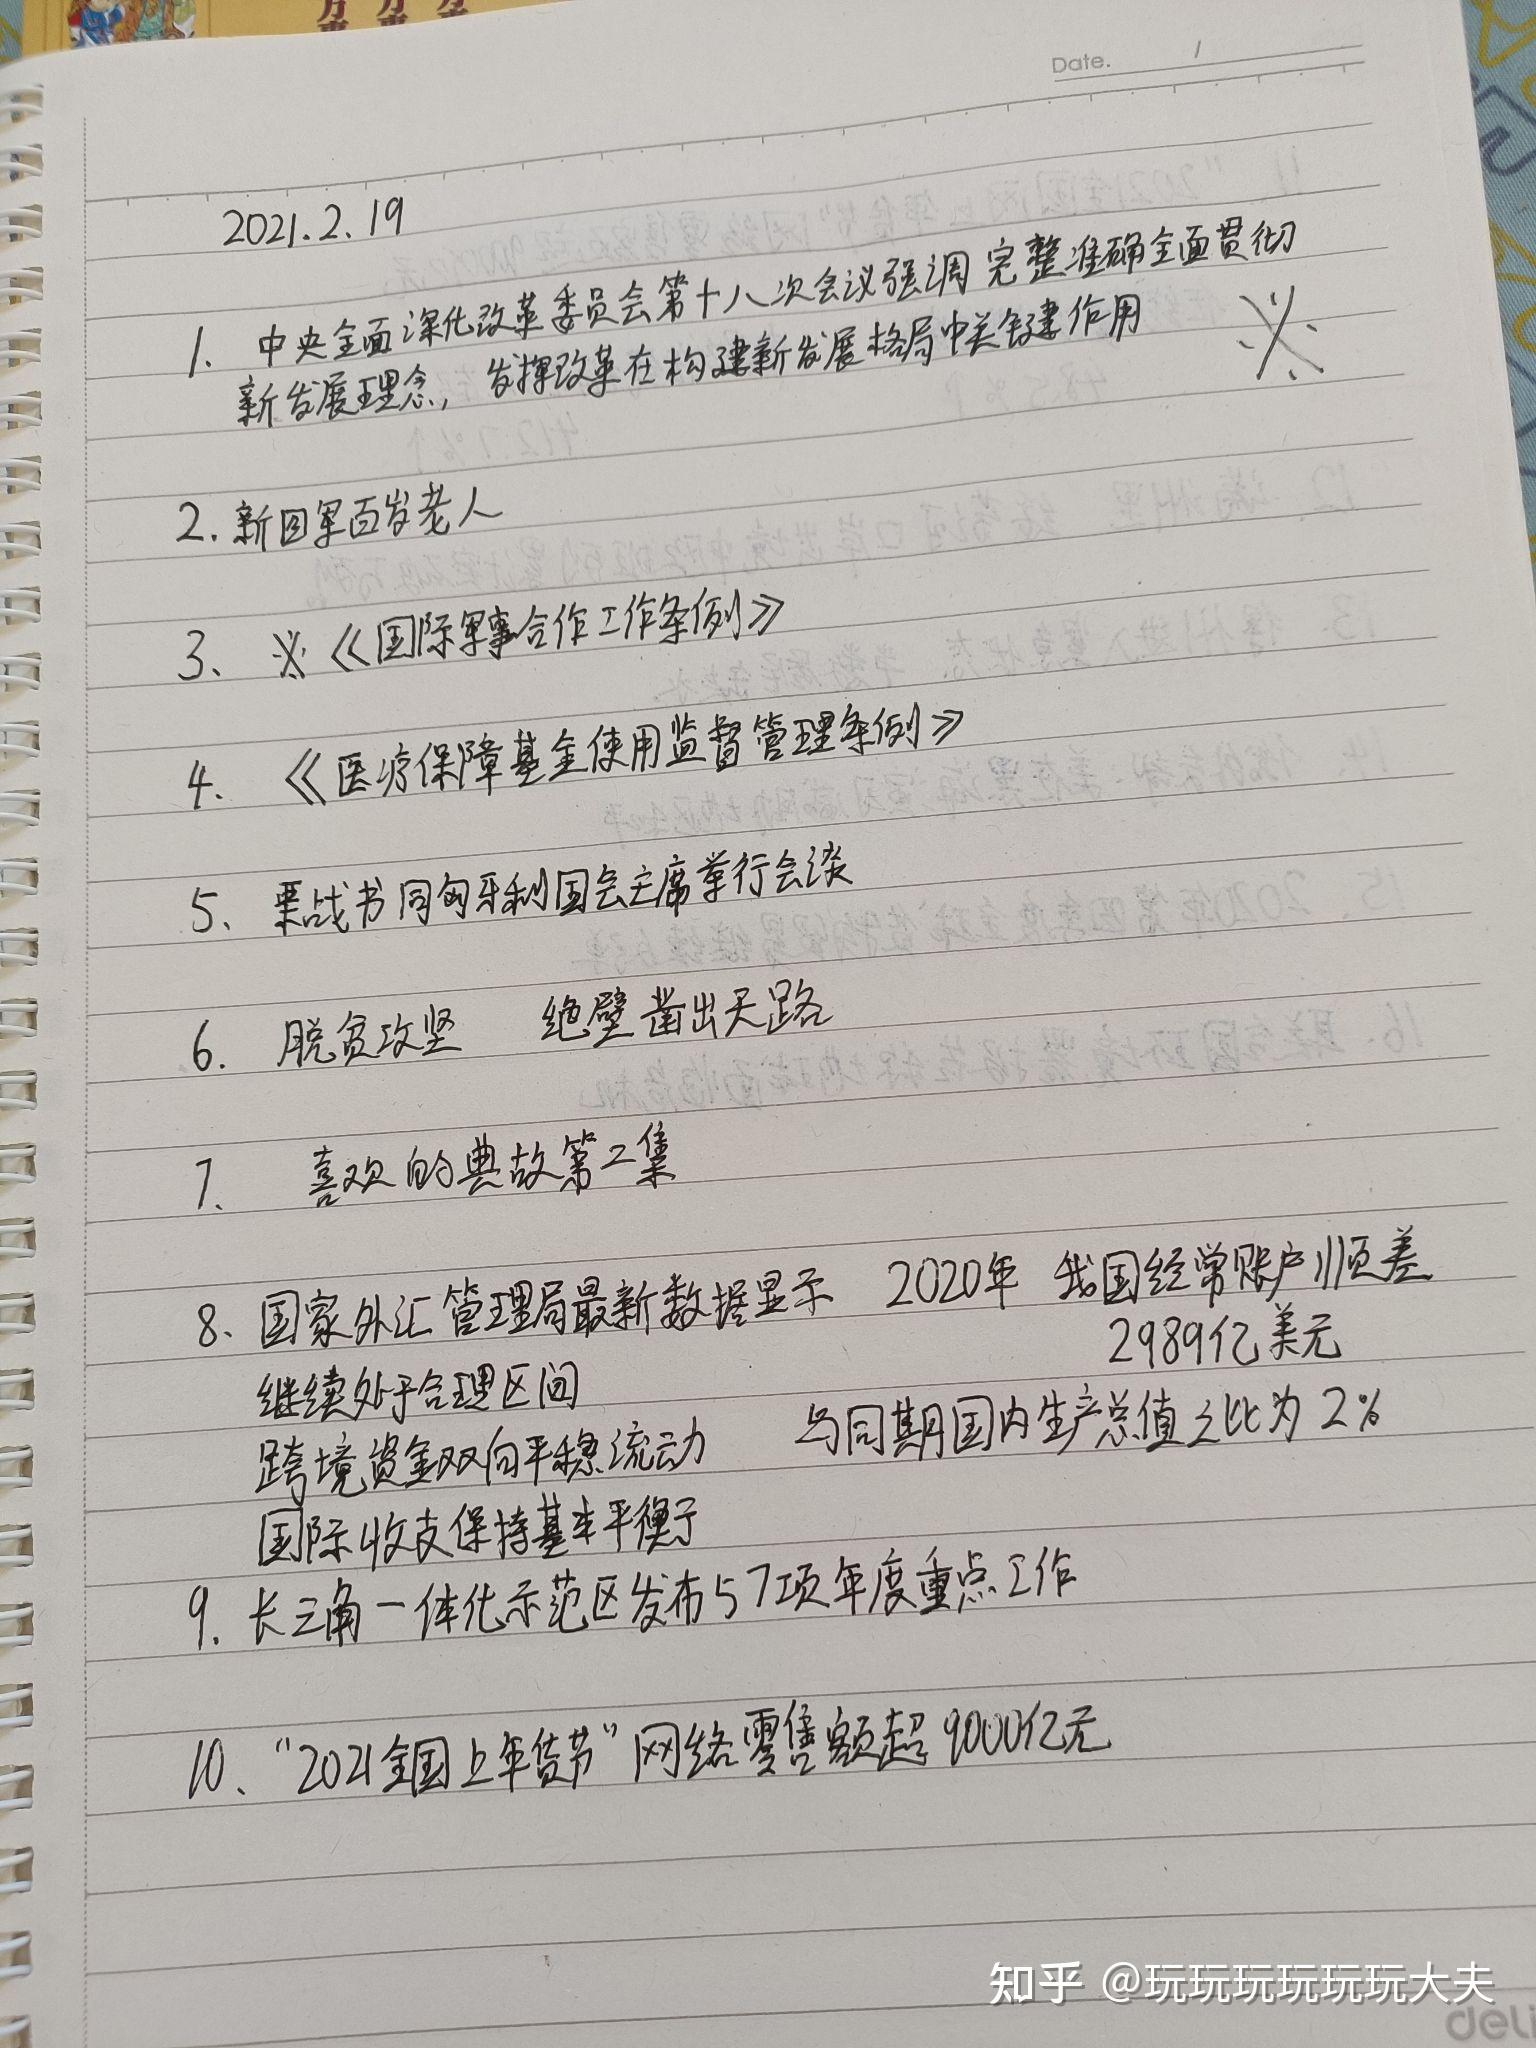 Date. 1
2021.2.19
1. 中央全面深化改革委员会第十八次会议强调 完整准确全面贯彻
新发展理念, 发挥改革在构建新发展格局中关键作用 ※
2. 新四军百岁老人
3. ※《国际军事合作工作条例》
4. 《医疗保障基金使用监督管理条例》
5、栗战书同匈牙利国会主席举行会谈
6. 脱贫攻坚 绝壁凿出天路
7. 喜欢的典故第二集
8、国家外汇管理局最新数据显示 2020年 我国经常账户顺差
2989亿美元
继续处于合理区间
与同期国内生产总值之比为2%
跨境资金双向平稳流动
国际收支保持基本平衡
9. 长三角一体化示范区发布57项年度重点工作
10、“2021全国上年货节”网络零售额超9000亿元
知乎 @玩玩玩玩玩玩大夫
deli